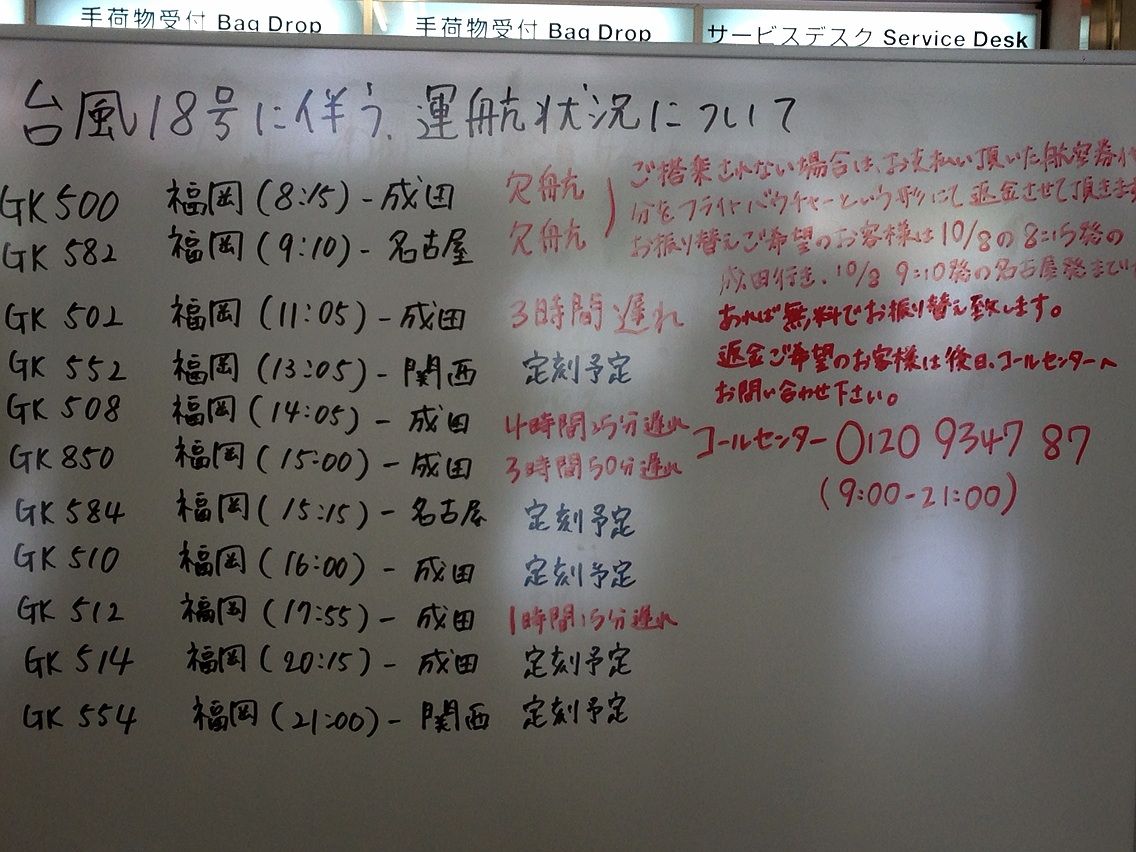 手荷物受付 Bag Drop
手荷物受付 Bag Drop
サービスデスク Service Desk
台風18号に伴う、運航状況について
GK 500 福岡(8:15)-成田 欠航
GK 582 福岡(9:10)-名古屋 欠航
GK 502 福岡(11:05)-成田 3時間遅れ
GK 552 福岡(13:05)-関西 定刻予定
GK 508 福岡(14:05)-成田 4時間25分遅れ
GK 850 福岡(15:00)-成田 3時間50分遅れ
GK 584 福岡(15:15)-名古屋 定刻予定
GK 510 福岡(16:00)-成田 定刻予定
GK 512 福岡(17:55)-成田 1時間15分遅れ
GK 514 福岡(20:15)-成田 定刻予定
GK 554 福岡(21:00)-関西 定刻予定
ご搭乗されない場合は、お支払い頂いた航空券代
分をフライトバウチャーという形にて返金させて頂きます
お振り替えご希望のお客様は10/8の8:15発の
成田行き、10/8 9:10発の名古屋発まで
あれば無料でお振り替え致します。
返金ご希望のお客様は後日、コールセンターへ
お問い合わせ下さい。
コールセンター 0120 9347 87
(9:00-21:00)